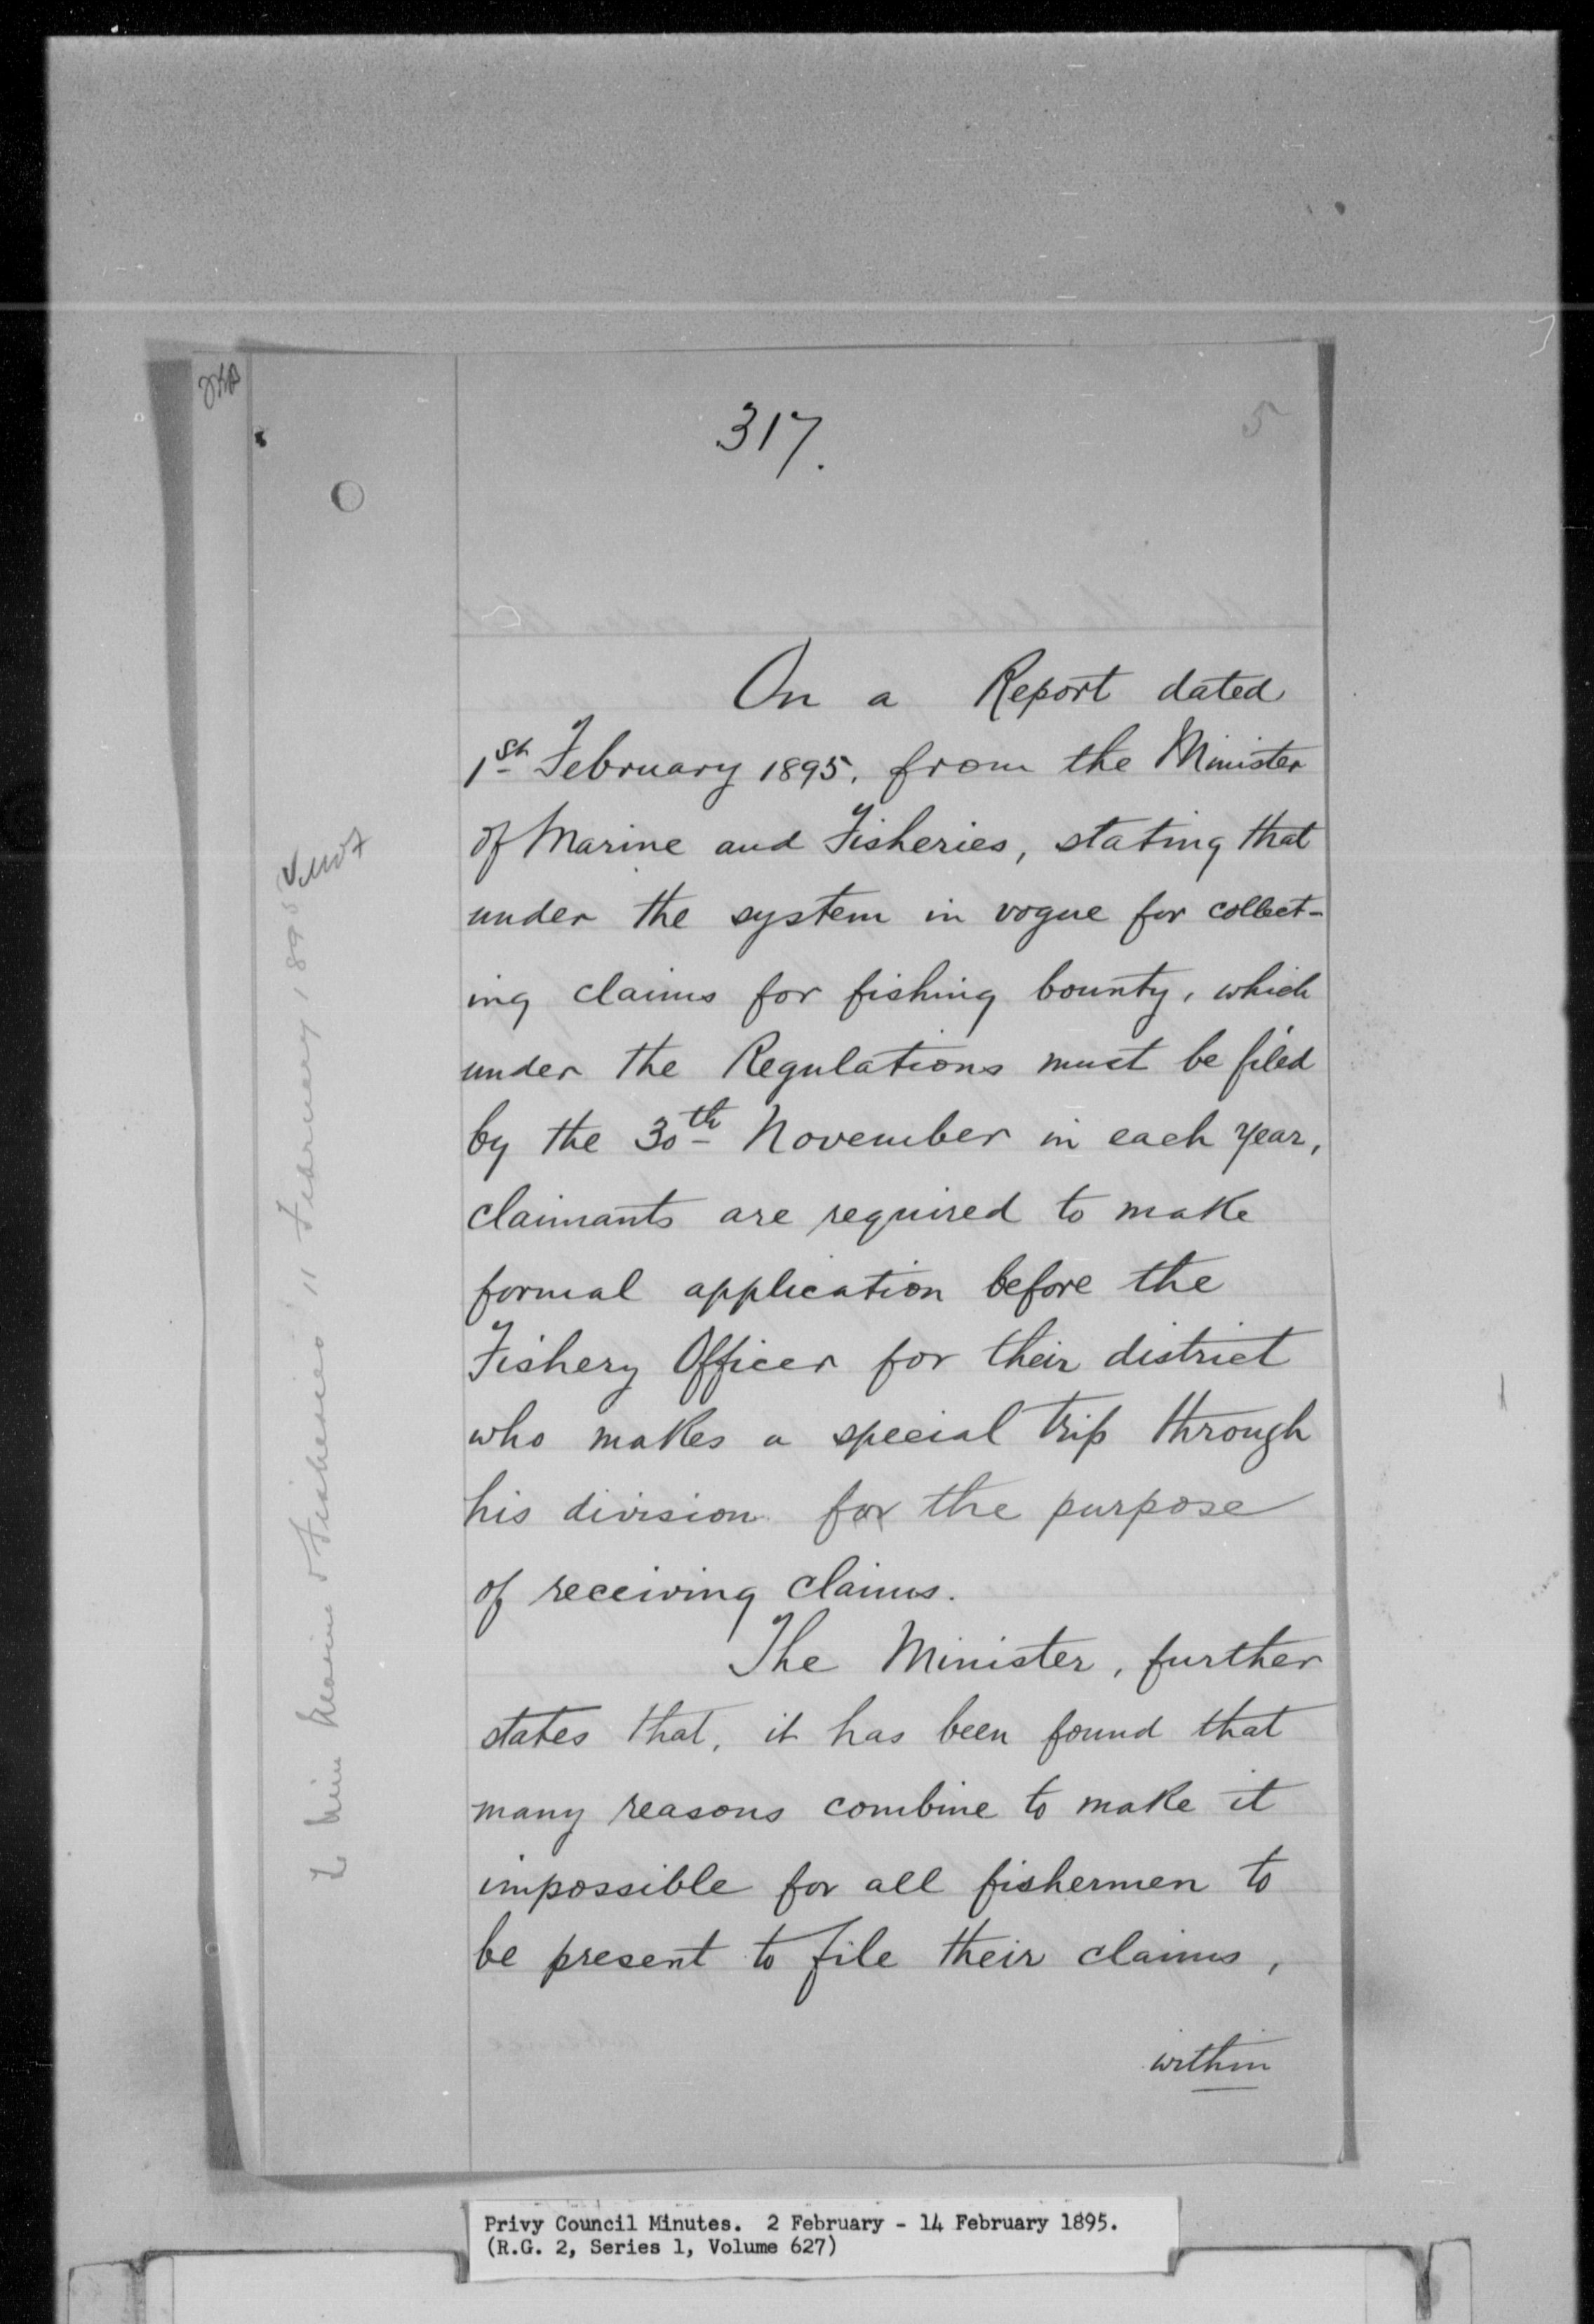 317.
5
On a Report dated
1st February 1895, from the Minister
of Marine and Fisheries, stating that
under the system in vogue for collect-
ing claims for fishing bounty, which
under the Regulations must be filed
by the 30th November in each year,
claimants are required to make
formal application before the
Fishery Officer for their district
who makes a special trip through
his division for the purpose
of receiving claims.
The Minister, further
states that, it has been found that
many reasons combine to make it
impossible for all fishermen to
be present to file their claims,
within
Min Marine & Fisheries 11 February 1895
Privy Council Minutes. 2 February - 14 February 1895.
(R.G. 2, Series 1, Volume 627)